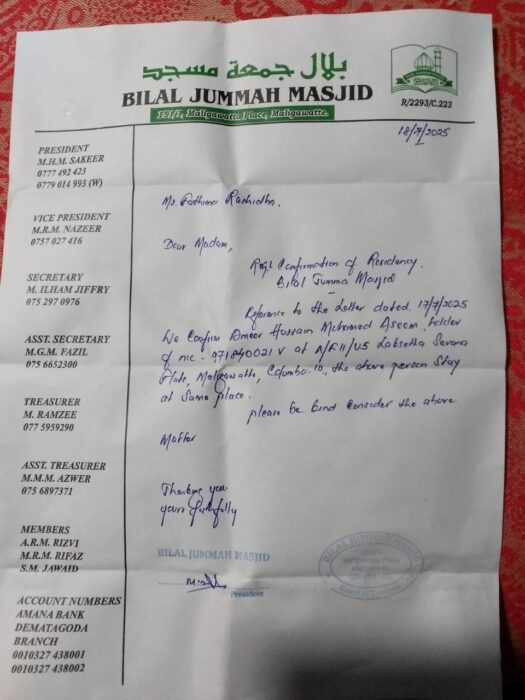 بلال جمعة مسجد
BILAL JUMMAH MASJID
151/1, Maligawatta Place, Maligawatte.
R/2293/C.223
18/7/2025
PRESIDENT
M.H.M. SAKEER
0777 492 423
0779 014 993 (W)
VICE PRESIDENT
M.R.M. NAZEER
0757 027 416
SECRETARY
M. ILHAM JIFFRY
075 297 0976
ASST. SECRETARY
M.G.M. FAZIL
075 6652300
TREASURER
M. RAMZEE
077 5959290
ASST. TREASURER
M.M.M. AZWER
075 6897371
MEMBERS
A.R.M. RIZVI
M.R.M. RIFAZ
S.M. JAWAID
ACCOUNT NUMBERS
AMANA BANK
DEMATAGODA
BRANCH
0010327 438001
0010327 438002
Ms. Fathima Rashidha.
Dear Madam,
Confirmation of Residency.
Bilal Jumma Masjid
Reference to the Letter dated. 17/7/2025
We Confirm Ameer Hussain Mohamed Aseem. holder
of nic - 971840021V at Laksetha Sevana
Flats, Maligawatta, Colombo-10, the above person Stay
at Same place.
please be kind Consider the above
Matter
Thanking you.
yours faithfully
BILAL JUMMAH MASJID
President
BILAL JUMMAH MASJID
Maligawatta Place,